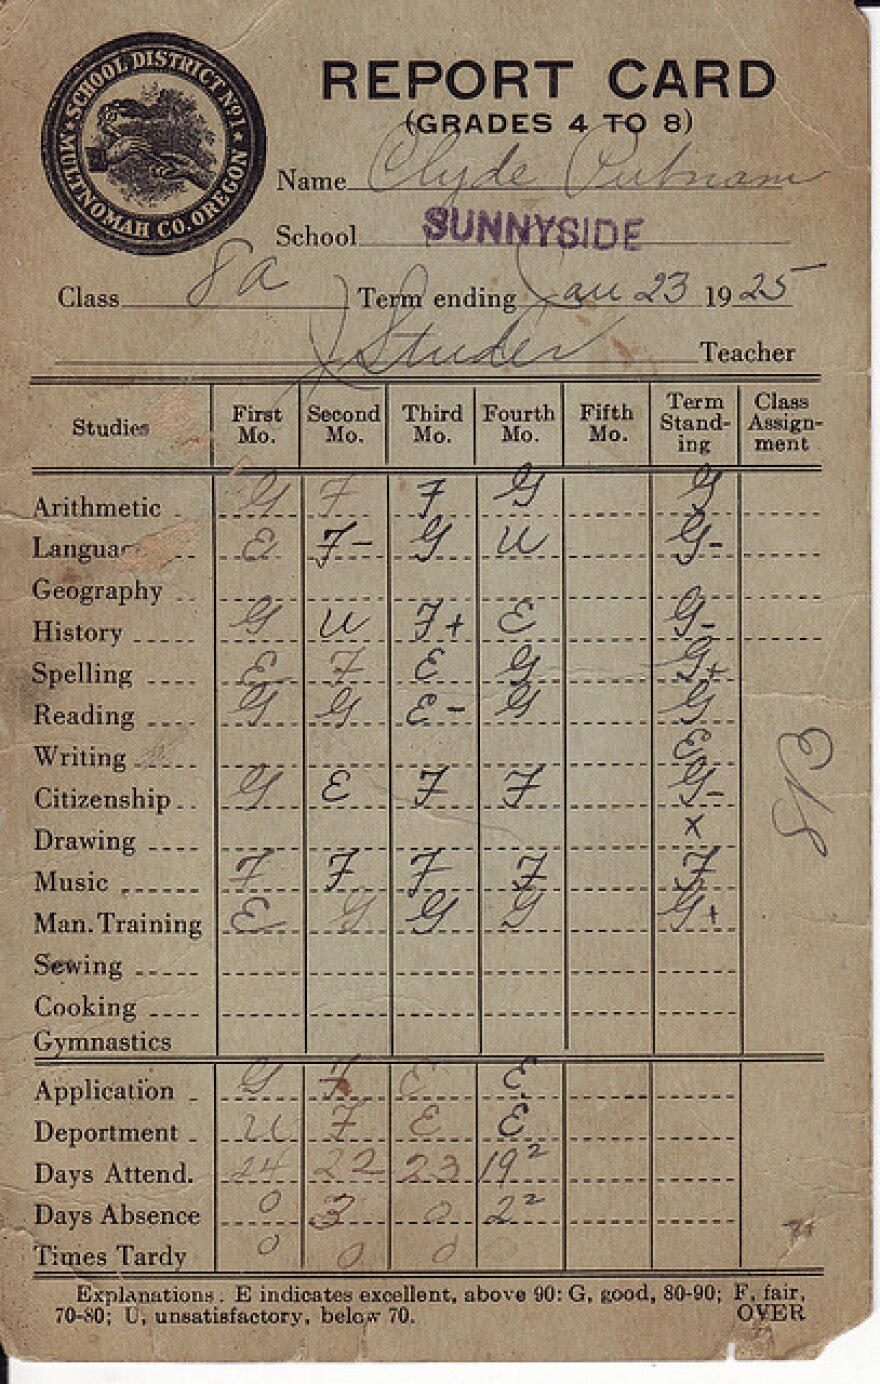 SCHOOL DISTRICT NO.1. MULTNOMAH CO. OREGON
REPORT CARD
(GRADES 4 TO 8)
Name Clyde Putnam
School SUNNYSIDE
Class 8a Term ending Jan 23 1925
J Studer Teacher
Studies First Mo. Second Mo. Third Mo. Fourth Mo. Fifth Mo. Term Stand-ing Class Assign-ment
Arithmetic G F F G G
Language E F- G U G-
Geography
History G U F+ E G-
Spelling E F E G G+
Reading G G E- G G
Writing E
Citizenship G E F F G-
Drawing x
Music F F F F F
Man. Training E G G G G+
Sewing
Cooking
Gymnastics
8B
Application G F E E
Deportment U F E E
Days Attend. 24 22 23 19²
Days Absence 0 3 0 2²
Times Tardy 0 0 0
Explanations. E indicates excellent, above 90: G, good, 80-90; F, fair,
70-80; U, unsatisfactory, below 70. OVER